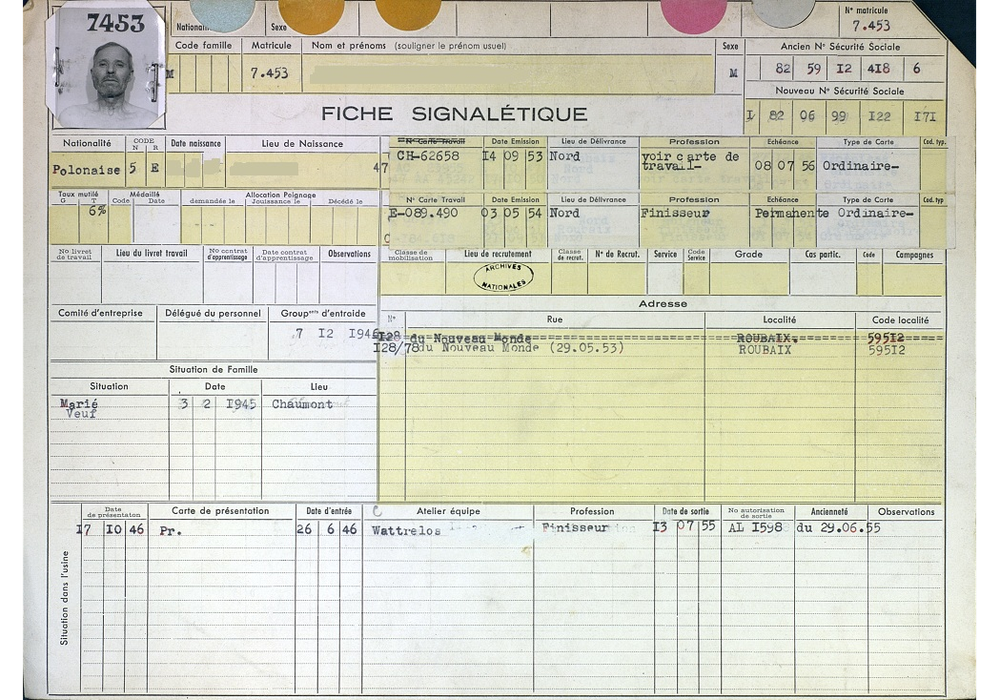 7453
Sexe
N° matricule
7.453
Code famille Matricule Nom et prénoms (souligner le prénom usuel) Sexe Ancien N° Sécurité Sociale
M 7.453 M 82 59 I2 4I8 6
Nouveau N° Sécurité Sociale
FICHE SIGNALÉTIQUE
I 82 06 99 I22 I7I
Nationalité CODE N R Date naissance Lieu de Naissance N° Carte Travail Date Emission Lieu de Délivrance Profession Echéance Type de Carte Cod. typ.
Polonaise 5 E 47 CH-62658 I4 09 53 Nord voir carte de travail- 08 07 56 Ordinaire-
Taux mutilé G T Médaillé Code Date Allocation Peignage demandée le Jouissance le Décédé le N° Carte Travail Date Emission Lieu de Délivrance Profession Echéance Type de Carte Cod. typ
6% E-089.490 03 05 54 Nord Finisseur Permanente Ordinaire-
No livret de travail Lieu du livret travail No contrat d'apprentissage Date contrat d'apprentissage Observations Classe de mobilisation Lieu de recrutement Classe de recrut. N° de Recrut. Service Code Service Grade Cas partic. Code Campagnes
ARCHIVES NATIONALES
Adresse
Comité d'entreprise Délégué du personnel Group<sup>ent</sup> d'entraide N° Rue Localité Code localité
7 I2 I946 I28 du Nouveau Monde ROUBAIX. 595I2
I28/78 du Nouveau Monde (29.05.53) ROUBAIX 595I2
Situation de Famille
Situation Date Lieu
Marié 3 2 I945 Chaumont
Veuf
Date de présentation Carte de présentation Date d'entrée C Atelier équipe Profession Date de sortie No autorisation de sortie Ancienneté Observations
I7 I0 46 Pr. 26 6 46 Wattrelos Finisseur I3 07 55 AL I598 du 29.06.55
Situation dans l'usine